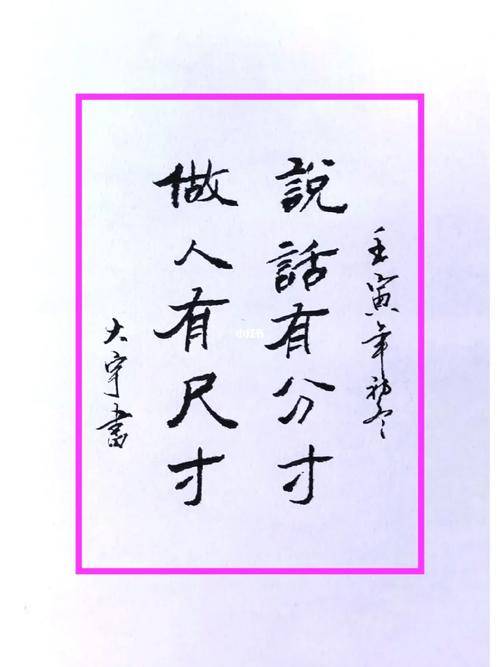 壬寅年初冬
說話有分寸
做人有尺寸
大宇書
小红书